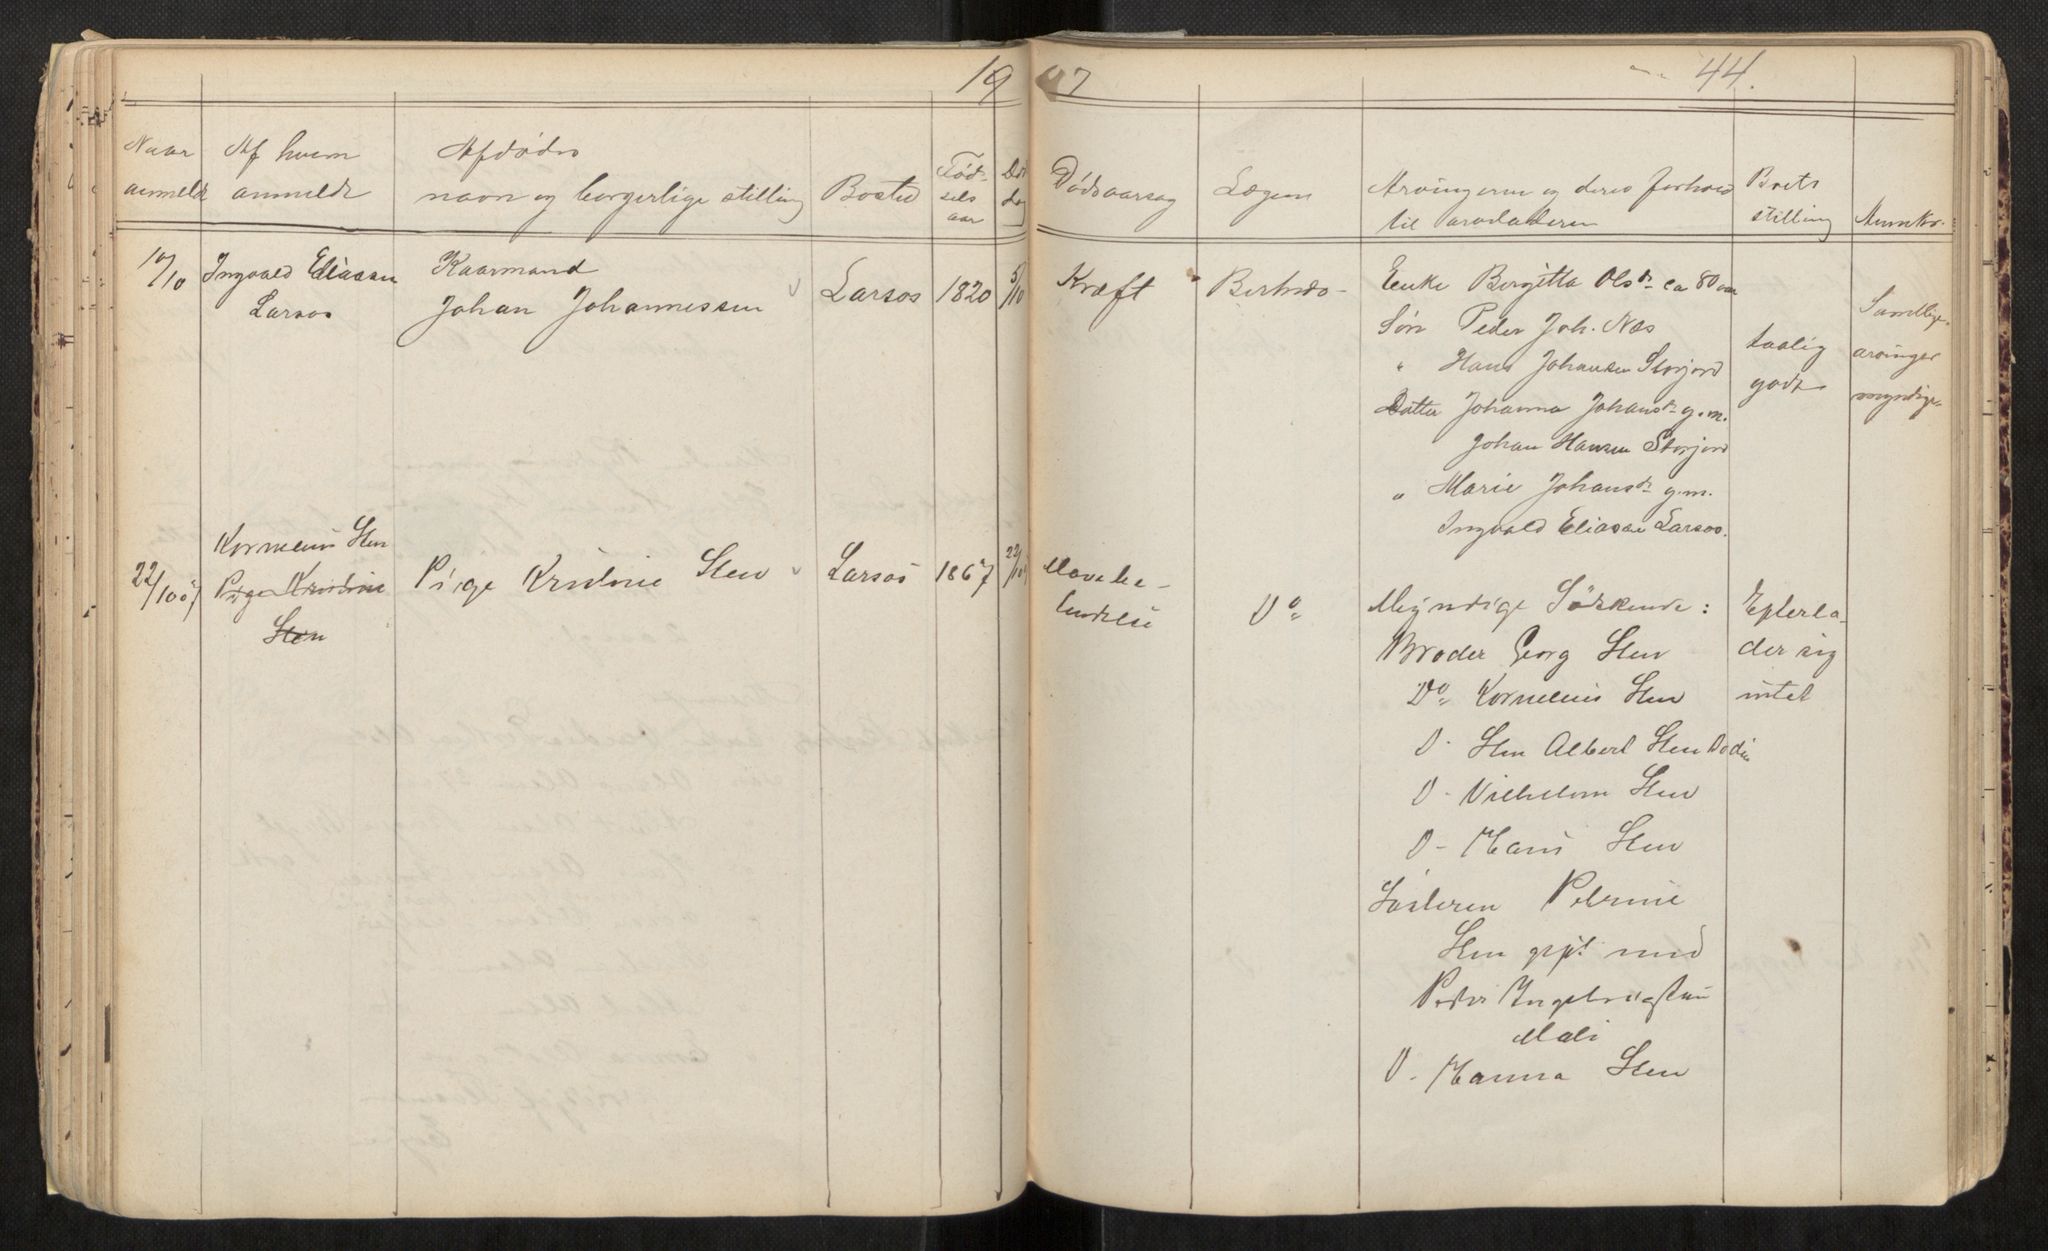 19 07
44.
Naar anmeldt
Af hvem anmeldt
Afdødes navn og borgerlige stilling
Bosted
Fødselsaar
Død Dag
Dødsaarsag
Lægen
Arvingerne og deres forhold til arveladeren
Boets stilling
Anmkr.
10/10
Ingvald Eliassen
Larsos
Kaarmand
Johan Johannessen
Larsos
1820
5/10
Kræft
Enke Bergitta Olsdr ca 80 aar
Søn Peder Joh. Næs
" Hans Johansen Storjord
Datter Johanna Johansdr g.m.
Johan Hansen Storjord
" Marie Johansdr g.m.
Ingvald Eliassen Larsos.
taalig
godt
Samtlige
arvinger
myndige
22/10 07
Kornelius Sten
Pige Kristine
Sten
Pige Kristine Sten
Larsos
1867
22/10
Do
Myndige Södskende:
Broder Georg Sten
Do Kornelius Sten
D- Sten Albert Sten
D- Vilhelm Sten
D- Hans Sten
Søsteren Petrine
Sten gift med
Peder Ingebrigtsen
D- Hanna Sten
Efterla-
der sig
intet